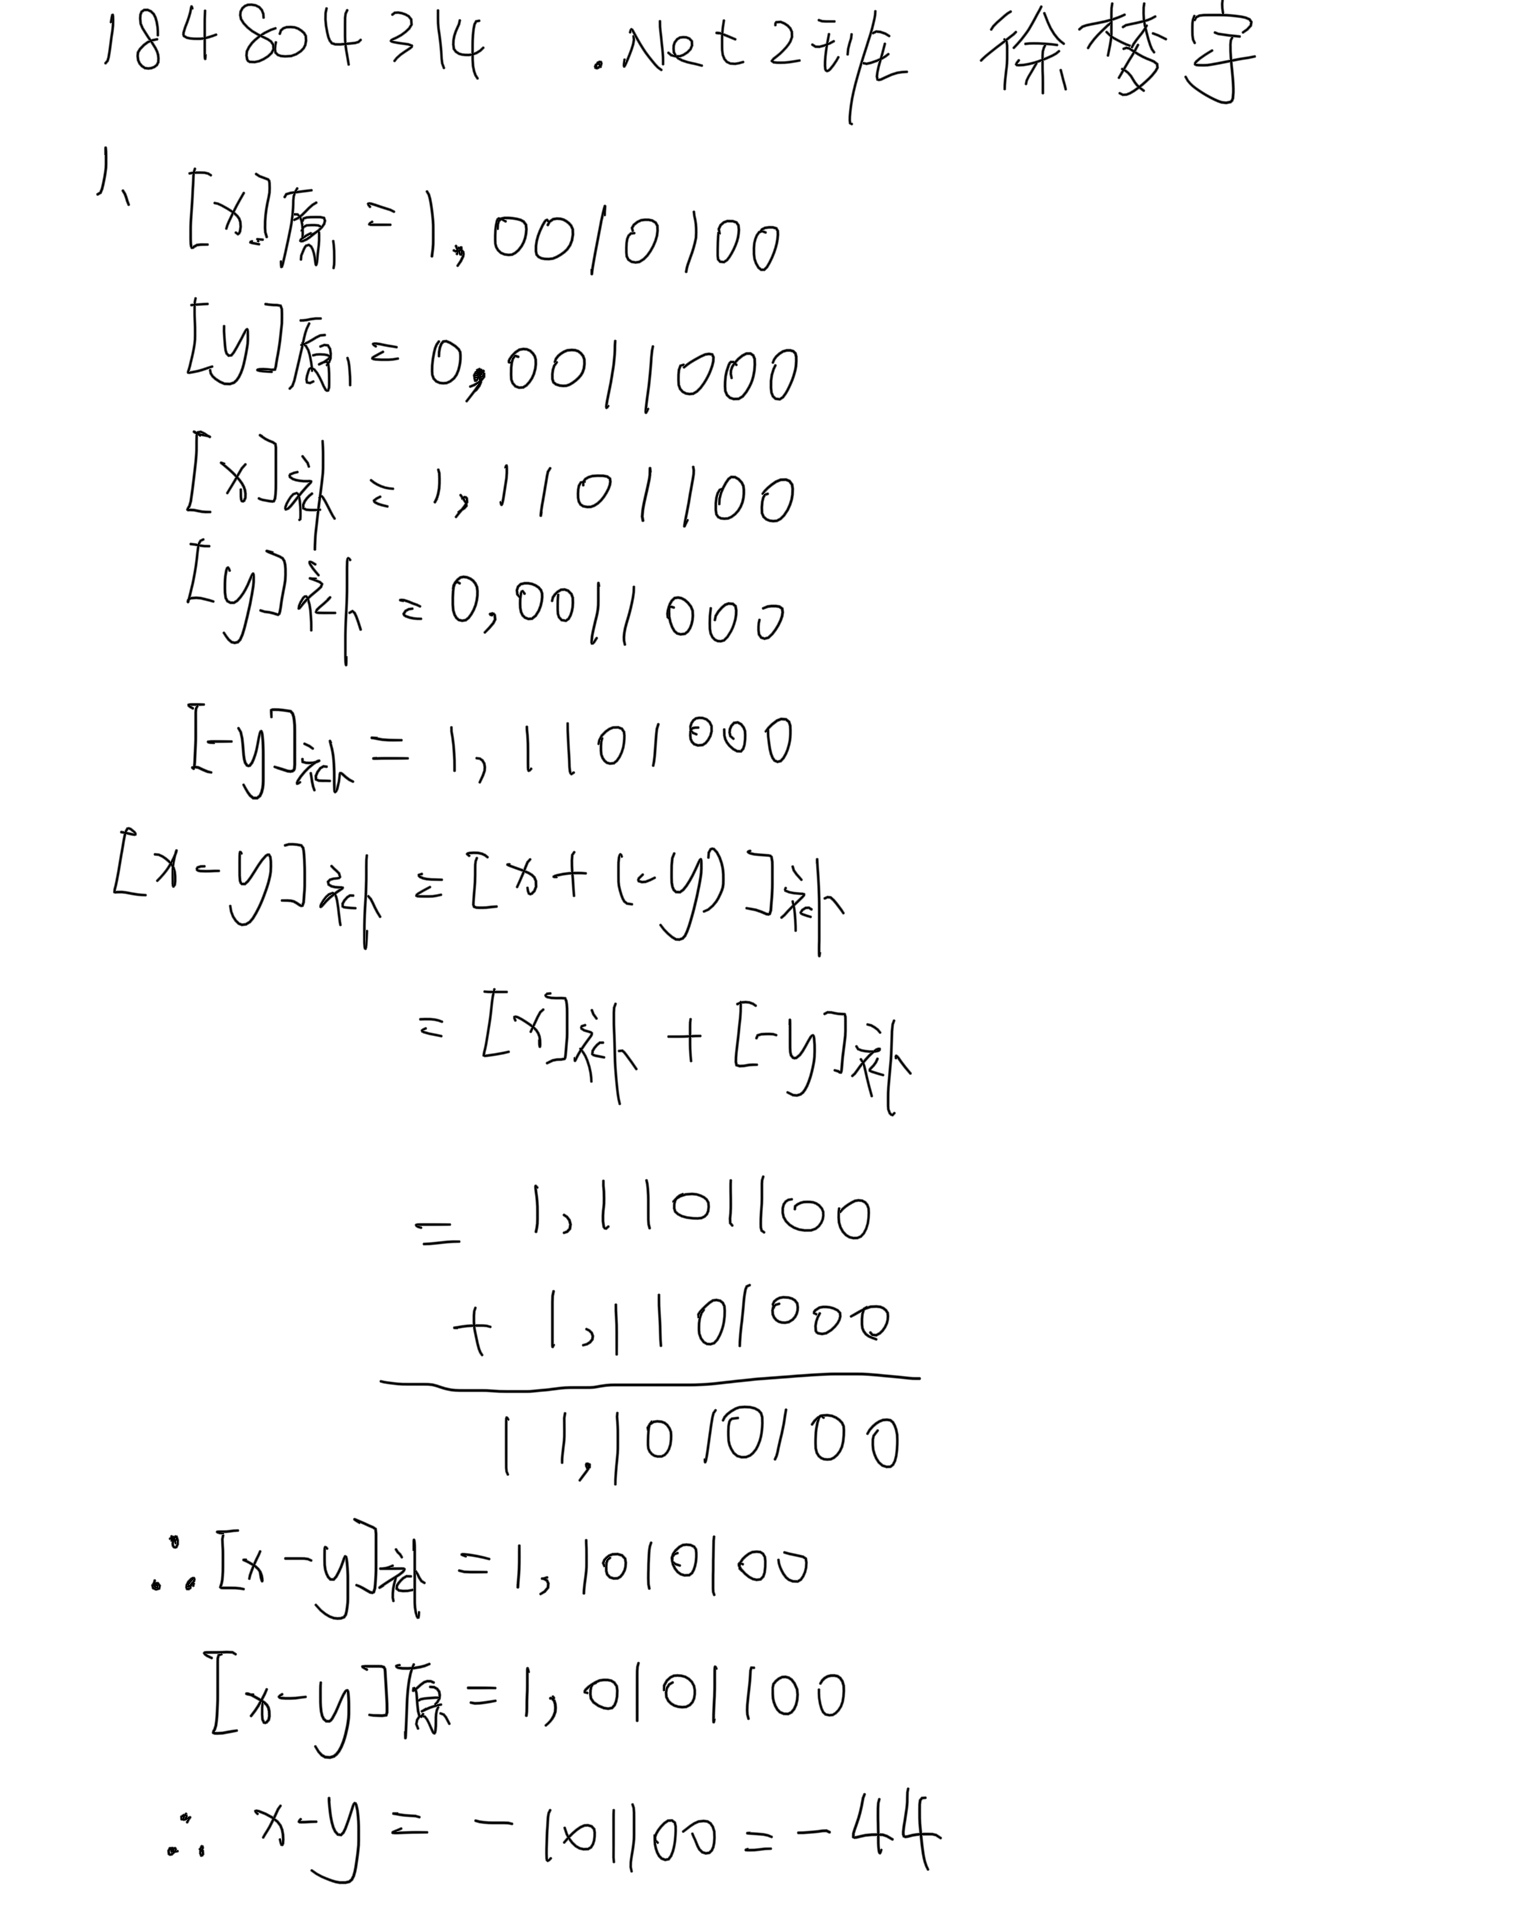 184804314 .Net2班 徐梦宇
1、 [x]原=1,0010100
[y]原=0,0011000
[x]补=1,1101100
[y]补=0,0011000
[-y]补=1,1101000
[x-y]补=[x+(-y)]补
=[x]补+[-y]补
= 1,1101100
+ 1,1101000
11,1010100
∴[x-y]补=1,1010100
[x-y]原=1,0101100
∴ x-y=-101100=-44